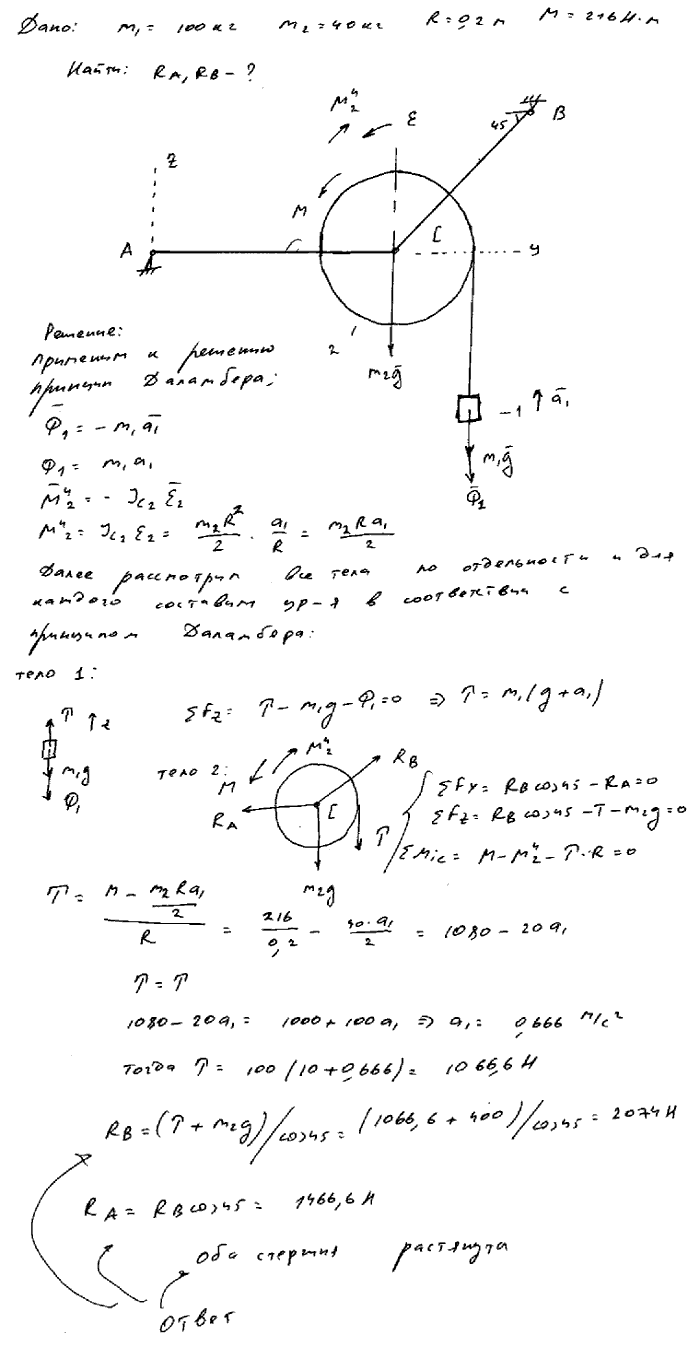 Дано: m₁ = 100 кг m₂ = 40 кг R = 0,2 м M = 216 Н·м
Найти: RA, RB - ?
M₂ᵘ ε B
45
z
M
A C y
Решение:
применим к решению 2
принцип Даламбера; m₂g̅
Φ̅₁ = - m₁a̅₁ -1 ↑ a̅₁
Φ₁ = m₁a₁ m₁g̅
M̅₂ᵘ = - Jc₂ ε̅₂ Φ̅₁
M₂ᵘ = Jc₂ ε₂ = m₂R²/2 · a₁/R = m₂Ra₁/2
Далее рассмотрим все тела по отдельности и для
каждого составим ур-я в соответствии с
принципом Даламбера:
тело 1:
T ↑z ΣFz = T - m₁g - Φ₁ = 0 ⇒ T = m₁(g + a₁)
m₁g
Φ₁
тело 2: M M₂ᵘ RB
RA C T m₂g
ΣFy = RB cos45 - RA = 0
ΣFz = RB cos45 - T - m₂g = 0
ΣMic = M - M₂ᵘ - T·R = 0
T = (M - m₂Ra₁/2)/R = 216/0,2 - 40·a₁/2 = 1080 - 20a₁
T = T
1080 - 20a₁ = 1000 + 100a₁ ⇒ a₁ = 0,666 м/с²
тогда T = 100(10 + 0,666) = 1066,6 Н
RB = (T + m₂g)/cos45 = (1066,6 + 400)/cos45 = 2074 Н
RA = RB cos45 = 1466,6 Н
Оба стержня растянута
Ответ